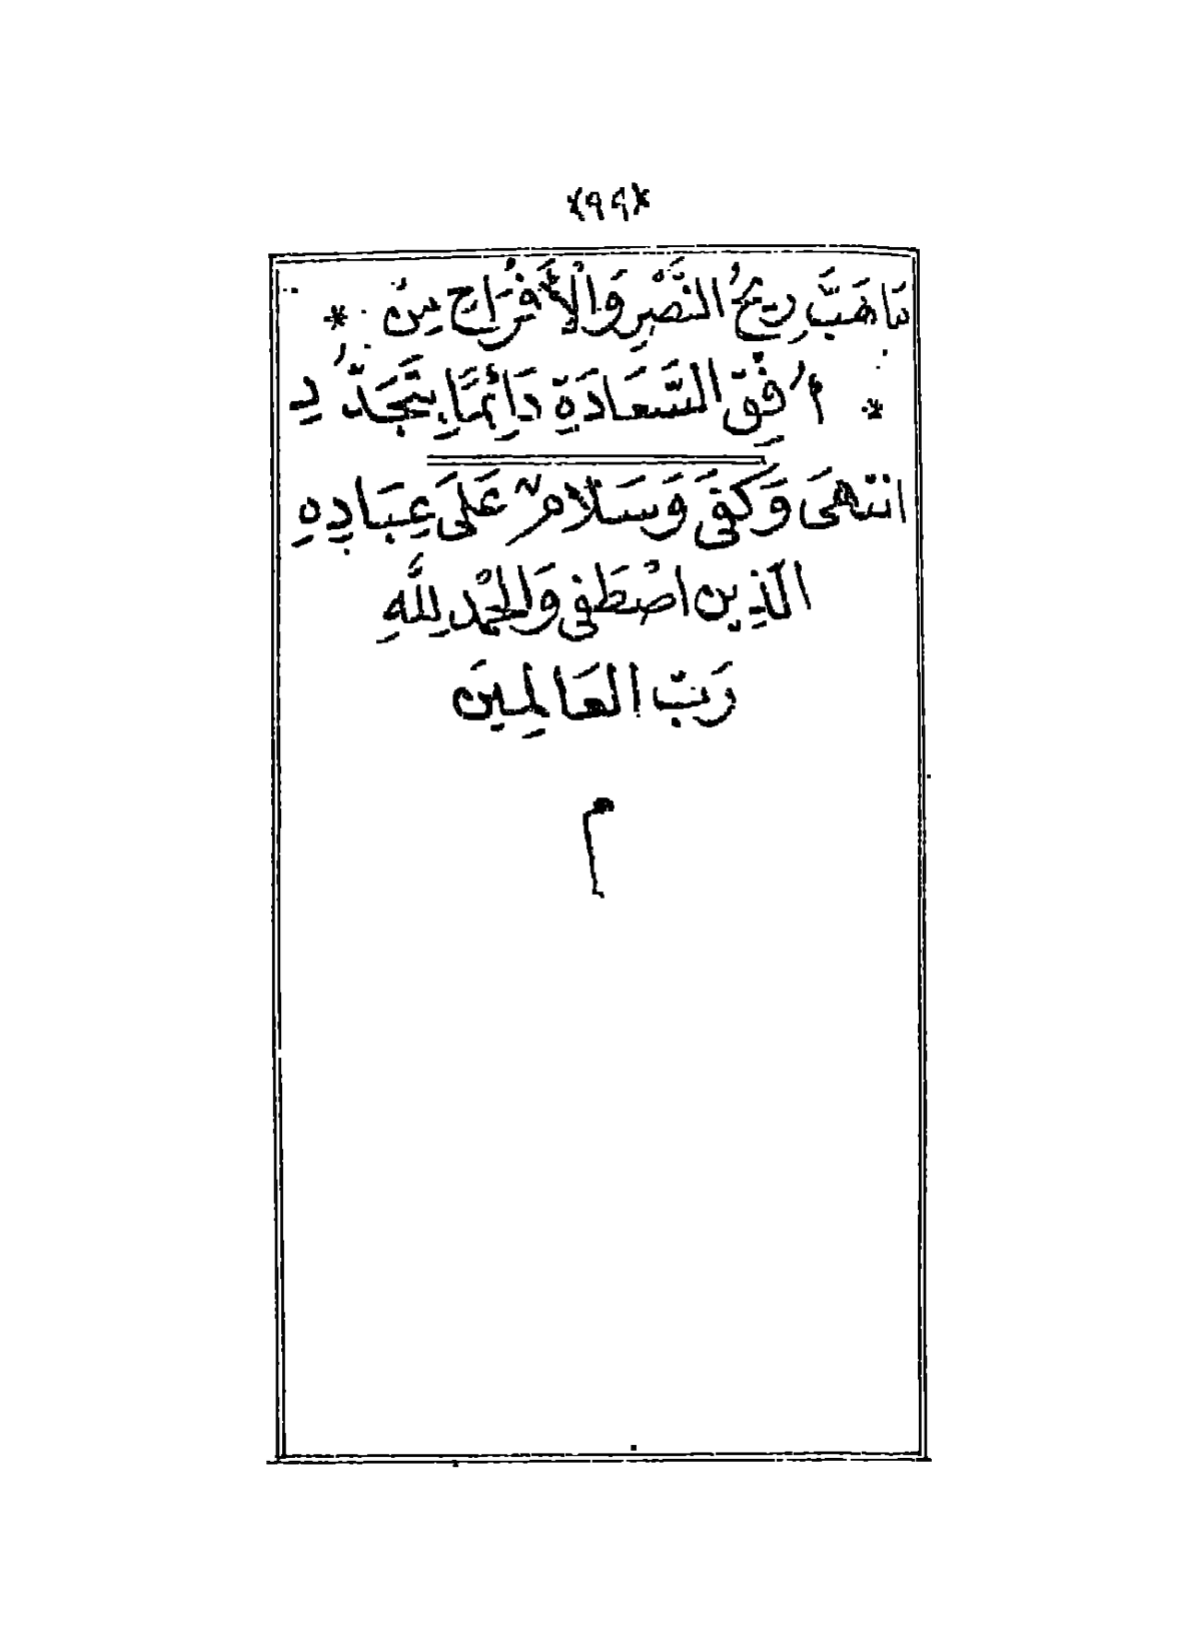 *٩٩*
مَا هَبَّ رِيحُ النَّصْرِ وَالْأَفْرَاحِ مِنْ *
* أُفْقِ السَّعَادَةِ دَائِمًا يَتَجَدَّدُ
انتهَى وَكَفَى وَسَلَامٌ عَلَى عِبَادِهِ
الَّذِين اصْطَفى وَالْحَمْد لِلَّهِ
رَبّ العَالمِينَ
م